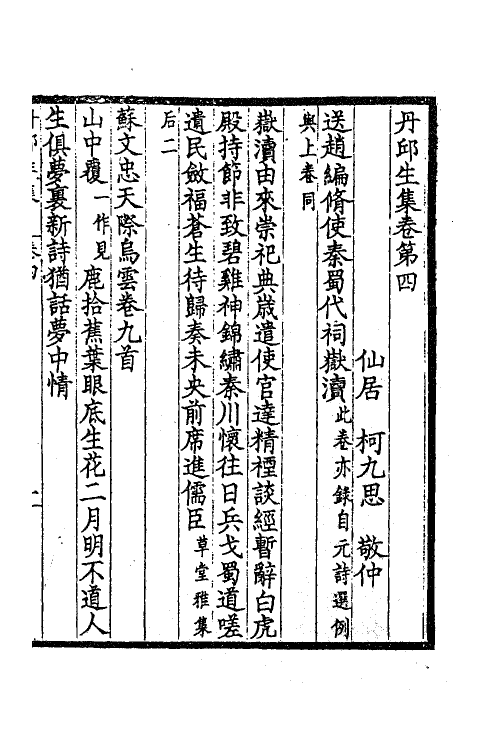 丹邱生集卷第四
仙居　柯九思　敬仲
送趙編脩使秦蜀代祠嶽瀆此卷亦錄自元詩選例
與上卷同
嶽瀆由來崇祀典歲遣使官達精禋談經暫辭白虎
殿持節非致碧雞神錦繡秦川懷往日兵戈蜀道嗟
遺民斂福蒼生待歸奏未央前席進儒臣草堂雅集
后二
蘇文忠天際烏雲卷九首
山中覆一作見鹿拾蕉葉眼底生花二月明不道人
生俱夢裏新詩猶話夢中情